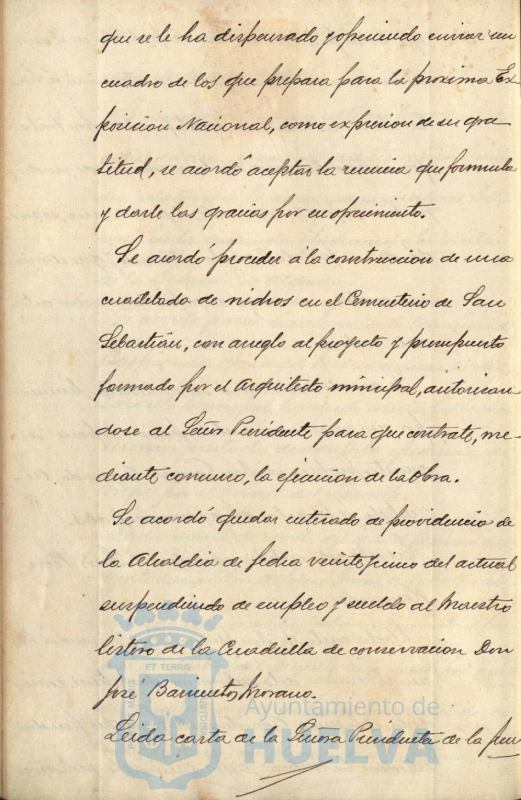 que se le ha dispensado y ofreciendo enviar un
cuadro de los que prepara para la proxima Ex
posicion Nacional, como expresion de su gra
titud, se acordó aceptar la renuncia que formula
y darle las gracias por su ofrecimiento.
Se acordó proceder á la construccion de una
cuartelada de nichos en el Cementerio de San
Sebastián, con arreglo al proyecto y presupuesto
formado por el Arquitecto municipal, autorizan
dose al Señor Presidente para que contrate, me-
diante concurso, la ejecucion de la obra.
Se acordó quedar enterado de providencia de
la Alcaldia de fecha veinticinco del actual
suspendiendo de empleo y sueldo al Maestro
listero de la Cuadrilla de conservacion Don
José Barrientos Morano.
Leida carta de la Señora Presidenta de la
ET TERRÆ
Ayuntamiento de
HUELVA